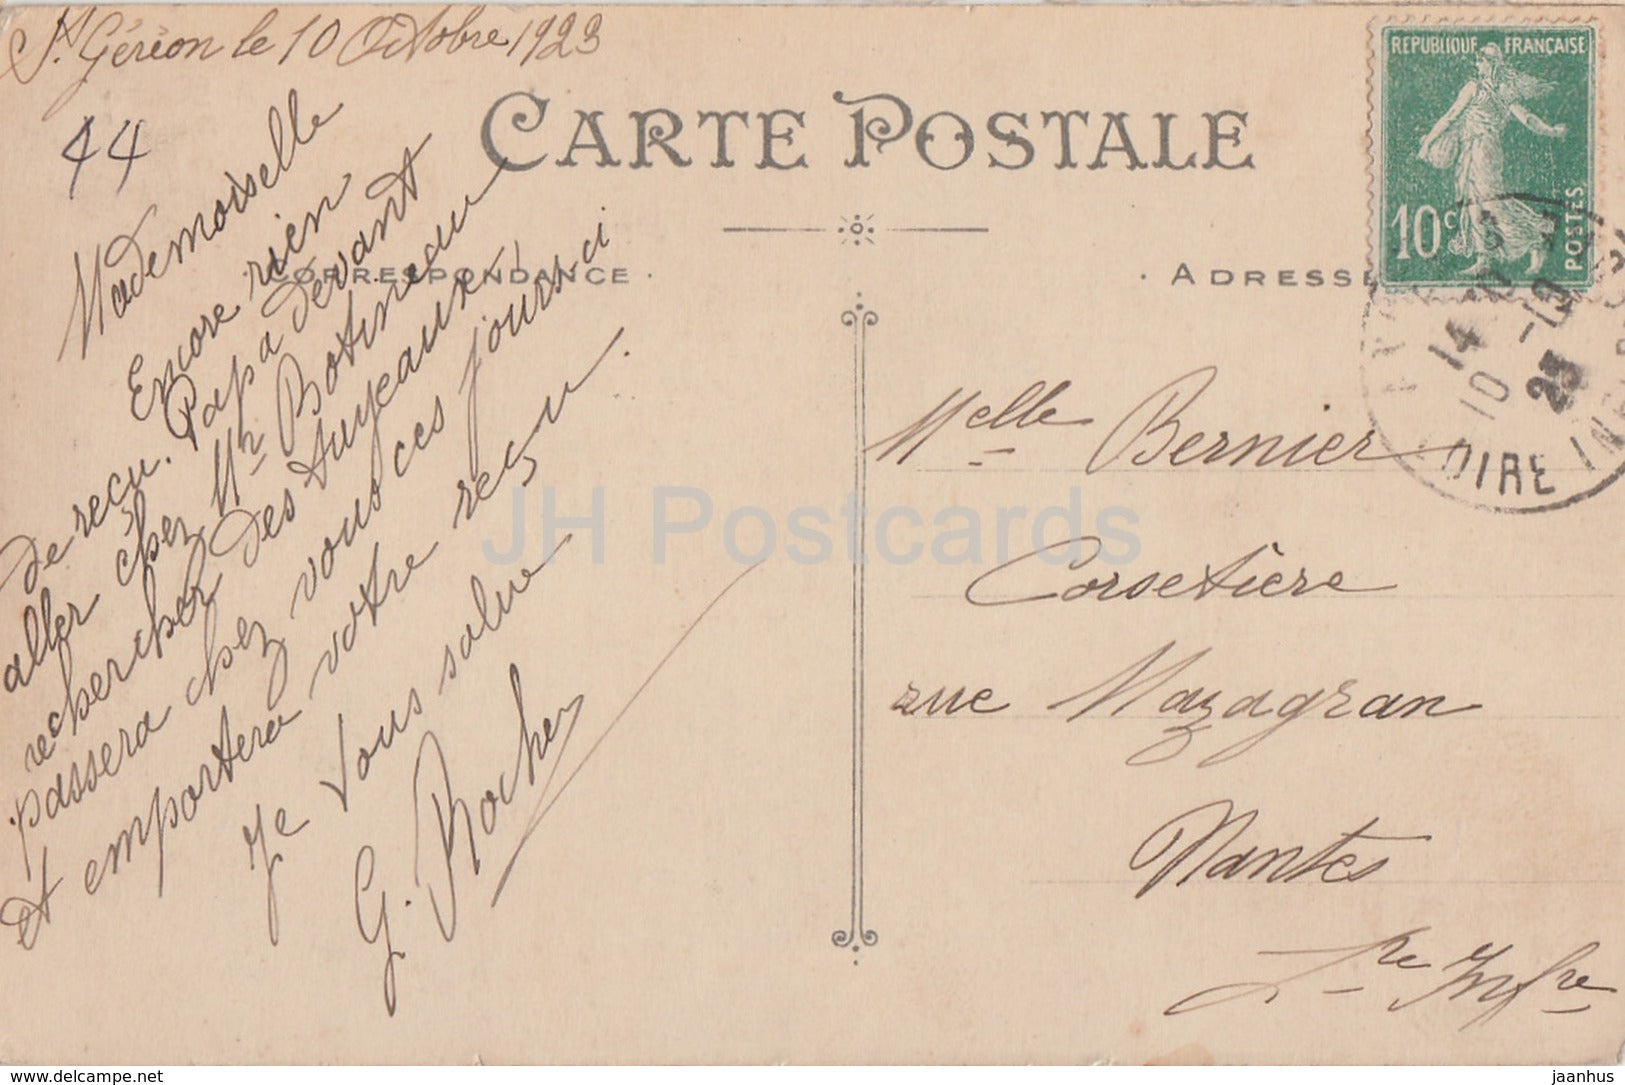 St Géréon le 10 Octobre 1923
44
CARTE POSTALE
CORRESPONDANCE
ADRESSE
REPUBLIQUE FRANÇAISE
10c
POSTES
Mademoiselle
Encore rien
de reçu. Papa devant
aller chez Mr Botineau
rechercher des tuyeaux,
passera chez vous ces jours ci
et emportera votre reçu.
Je vous salue
G. Rocher
Melle Bernier
Corsetière
rue Mazagran
Nantes
Lre Infre
14
10
-10
23
OIRE INF
JH Postcards
www.delcampe.net
jaanhus